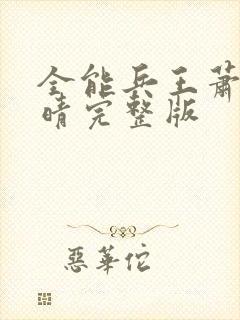 全能兵王萧
晴完整版
恶华佗